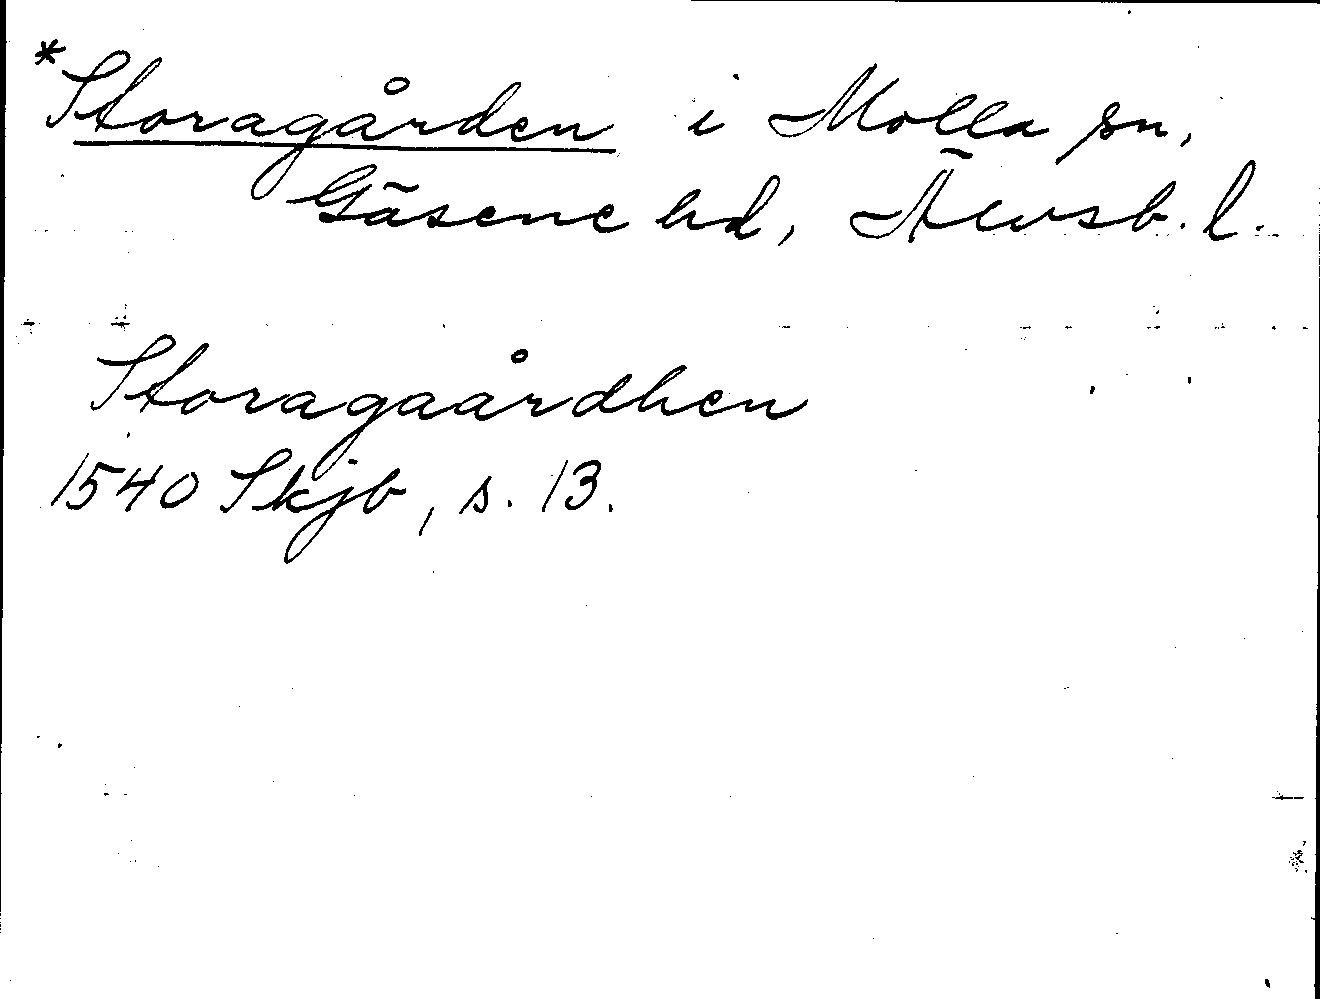 *Storagården i Molla sn,
Gäsene hd, Älvsb. l.
Storagaårdhen
1540 Skjb, s. 13.